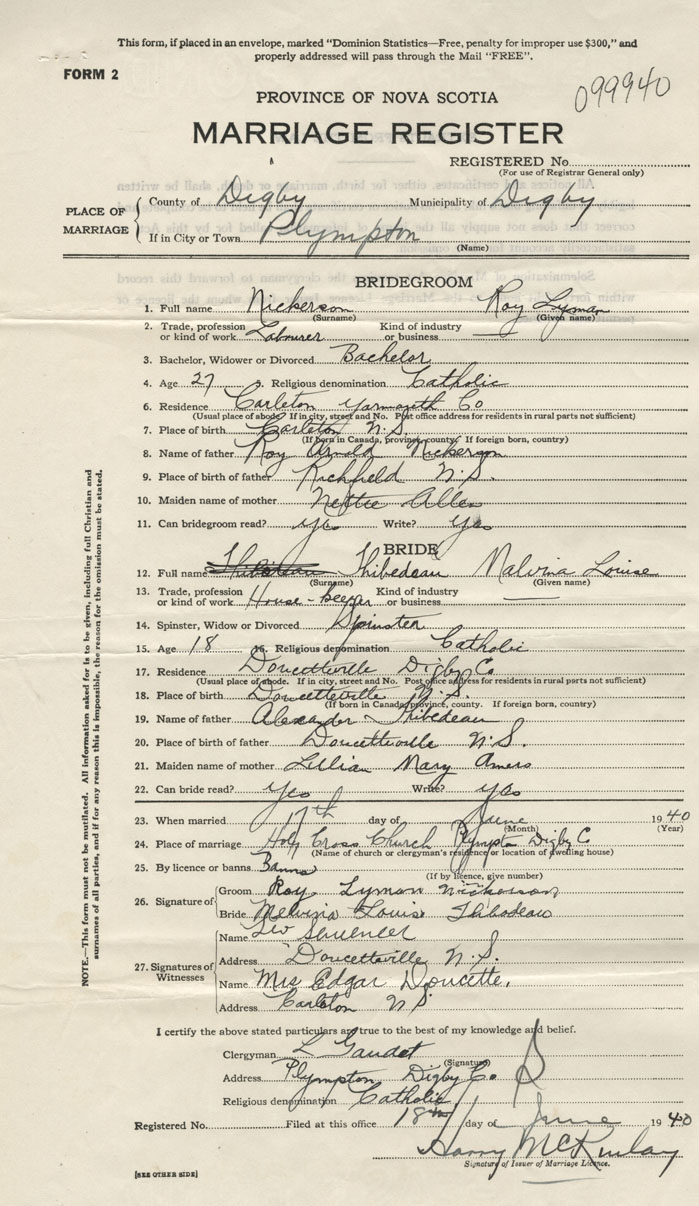 This form, if placed in an envelope, marked "Dominion Statistics—Free, penalty for improper use $300," and
properly addressed will pass through the Mail "FREE".
FORM 2
099940
PROVINCE OF NOVA SCOTIA
MARRIAGE REGISTER
REGISTERED No.
(For use of Registrar General only)
PLACE OF MARRIAGE
County of Digby Municipality of Digby
If in City or Town Plympton
(Name)
BRIDEGROOM
1. Full name Nickerson Roy Lyman
(Surname) (Given name)
2. Trade, profession or kind of work Labourer Kind of industry or business —
3. Bachelor, Widower or Divorced Bachelor
4. Age 27 5. Religious denomination Catholic
6. Residence Carleton Yarmouth Co
(Usual place of abode? If in city, street and No. Post office address for residents in rural parts not sufficient)
7. Place of birth Carleton N.S.
(If born in Canada, province, county. If foreign born, country)
8. Name of father Roy Arnold Nickerson
9. Place of birth of father Richfield N.S.
10. Maiden name of mother Nettie Allen
11. Can bridegroom read? yes Write? yes
BRIDE
12. Full name Thibedeau Malvina Louise
(Surname) (Given name)
13. Trade, profession or kind of work House-keeper Kind of industry or business —
14. Spinster, Widow or Divorced Spinster
15. Age 18 16. Religious denomination Catholic
17. Residence Doucetteville Digby Co
(Usual place of abode. If in city, street and No. Post office address for residents in rural parts not sufficient)
18. Place of birth Doucetteville N.S.
(If born in Canada, province, county. If foreign born, country)
19. Name of father Alexander Thibedeau
20. Place of birth of father Doucetteville N.S.
21. Maiden name of mother Lillian Mary Amero
22. Can bride read? yes Write? yes
23. When married 17th day of June 1940
(Month) (Year)
24. Place of marriage Holy Cross Church Plympton Digby C
(Name of church or clergyman's residence or location of dwelling house)
25. By licence or banns Banns
(If by licence, give number)
26. Signature of
Groom Roy Lyman Nickerson
Bride Melvina Louis Thibodeau
27. Signatures of Witnesses
Name
Address Doucetteville N.S.
Name Mrs Edgar Doucette,
Address Carleton N S
I certify the above stated particulars are true to the best of my knowledge and belief.
Clergyman L Gaudet
(Signature)
Address Plympton Digby Co
Religious denomination Catholic
Registered No. Filed at this office 18th day of June 1940
Harry McKinlay
Signature of Issuer of Marriage Licence.
[SEE OTHER SIDE]
NOTE.—This form must not be mutilated. All information asked for is to be given, including full Christian and
surnames of all parties, and if for any reason this is impossible, the reason for the omission must be stated.